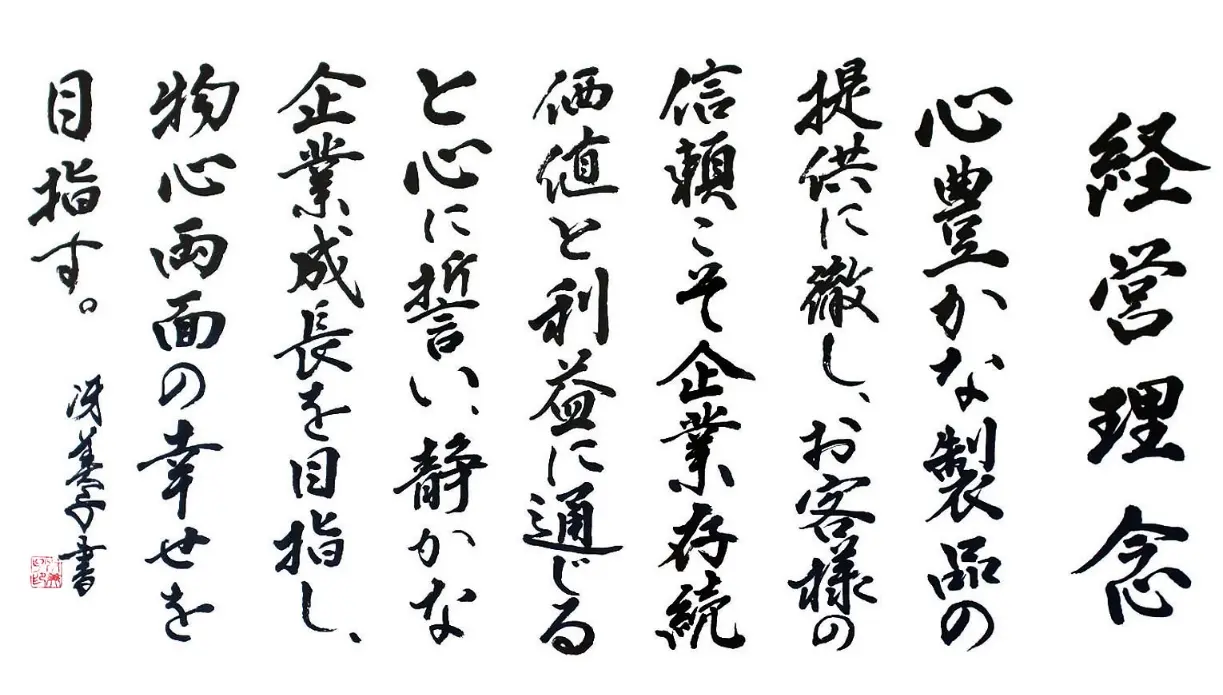 経営理念
心豊かな製品の
提供に徹し、お客様の
信頼こそ企業存続
価値と利益に通じる
と心に誓い、静かな
企業成長を目指し、
物心両面の幸せを
目指す。
冴美子書